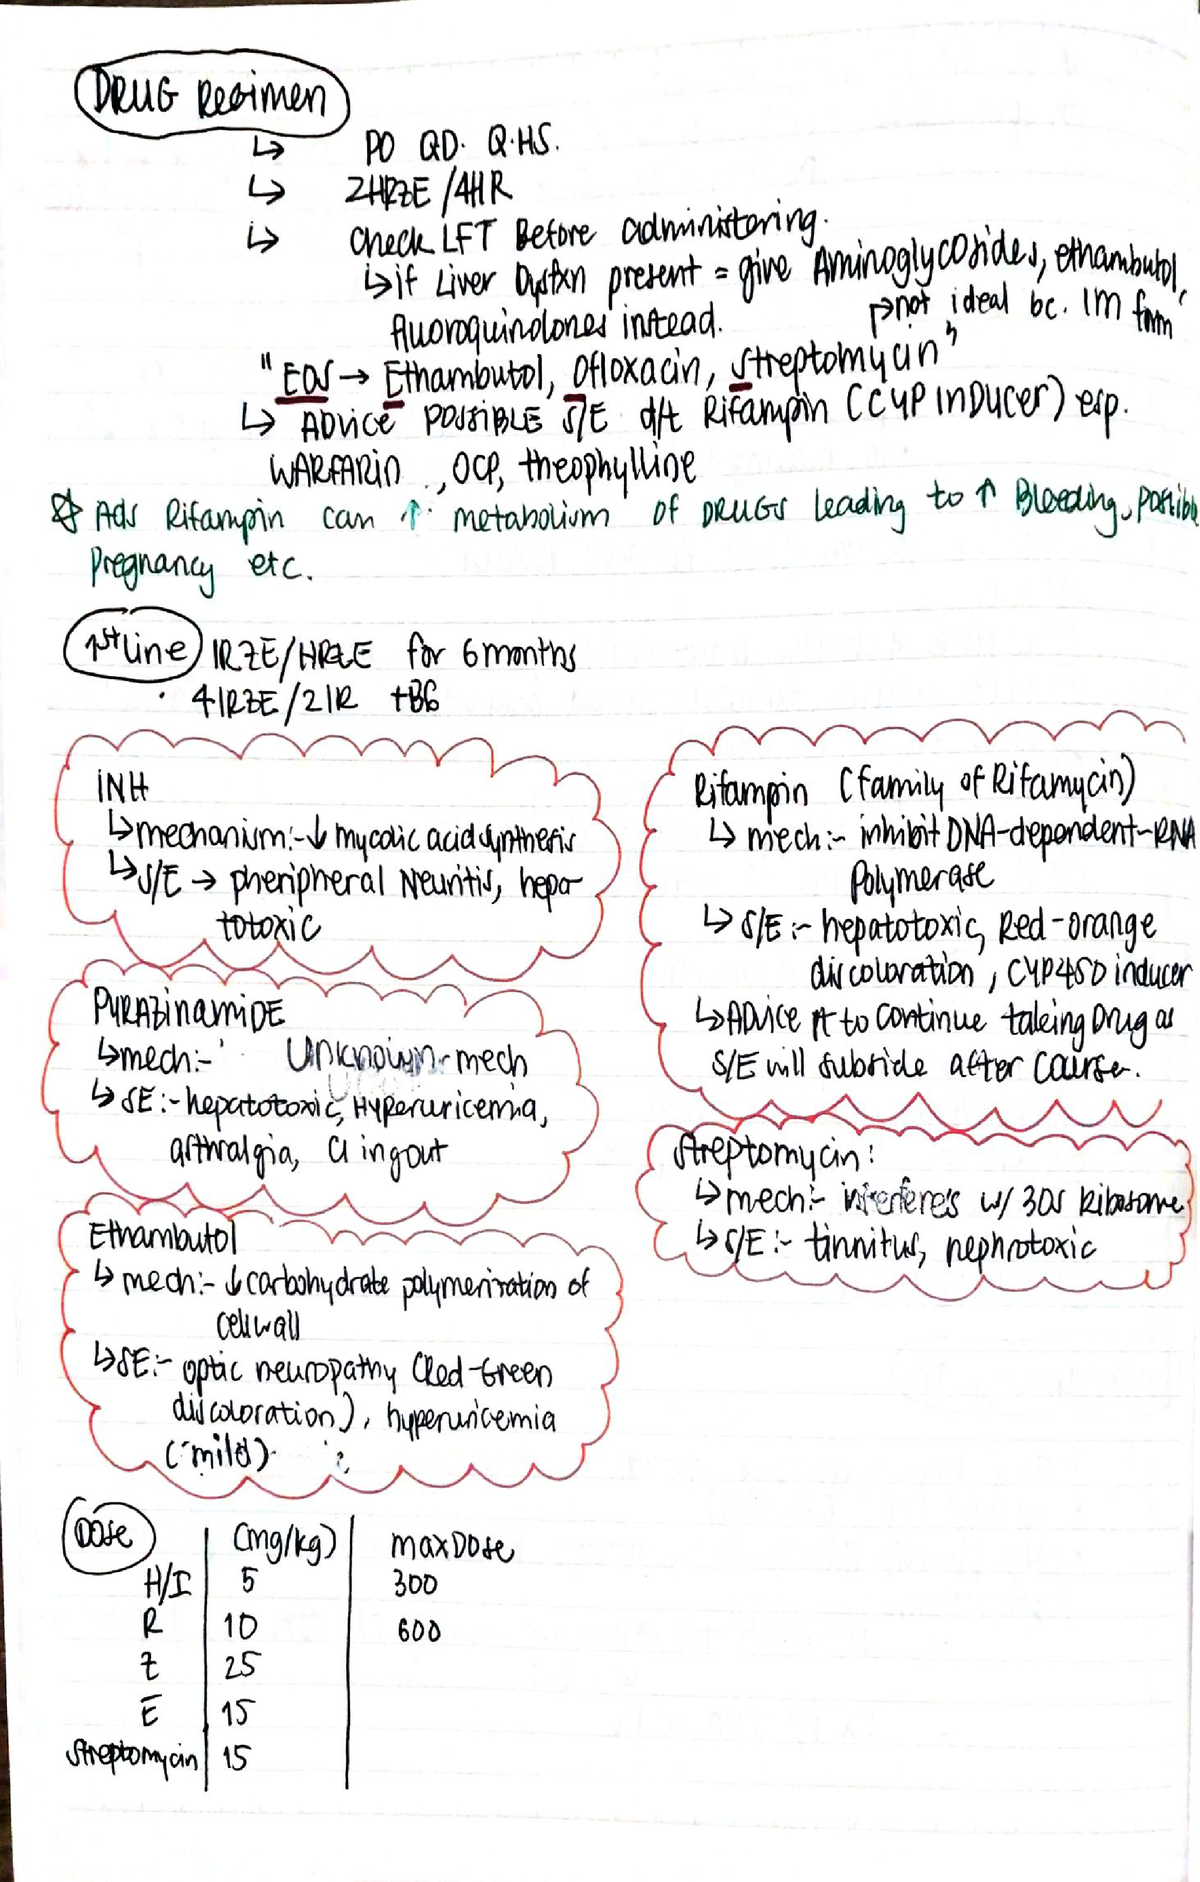 DRUG Regimen
↳ PO QD. Q.HS.
↳ 2HRZE/4HR
↳ check LFT Before administering.
↳ if Liver Dysfxn present = give Aminoglycosides, ethambutol,
fluoroquinolones instead. ↱ not ideal bc. IM form
"EOS → Ethambutol, Ofloxacin, Streptomycin"
↳ ADvice POSSIBLE S/E d/t Rifampin (CYP INDUCER) esp.
WARFARIN, OCP, theophylline
Ads Rifampin can ↑ metabolism of DRUGS leading to ↑ Bleeding, possible
Pregnancy etc.
1st line IRZE/HRZE for 6 months
4IRZE/2IR
INH
↳ mechanism:- ↓ mycolic acid synthesis
↳ S/E → pheripheral Neuritis, hepa-
totoxic
PYRAZinamiDE
↳ mech:- Unknown mech
↳ SE:- hepatotoxic, Hyperuricemia,
arthralgia, CI in gout
Ethambutol
↳ mech:- ↓ carbohydrate polymerization of
cell wall
↳ SE:- optic neuropathy (Red-Green
discoloration), hyperuricemia
(mild).
Rifampin (family of Rifamycin)
↳ mech:- inhibit DNA-dependent-RNA
Polymerase
↳ S/E:- hepatotoxic, Red-orange
discoloration, CYP450 inducer
↳ ADvice pt to continue taking Drug as
S/E will subside after course.
Streptomycin:
↳ mech:- interferes w/ 30S Ribosome
↳ S/E:- tinnitus, nephrotoxic
Dose (mg/kg) max Dose
H/I 5 300
R 10 600
Z 25
E 15
Streptomycin 15